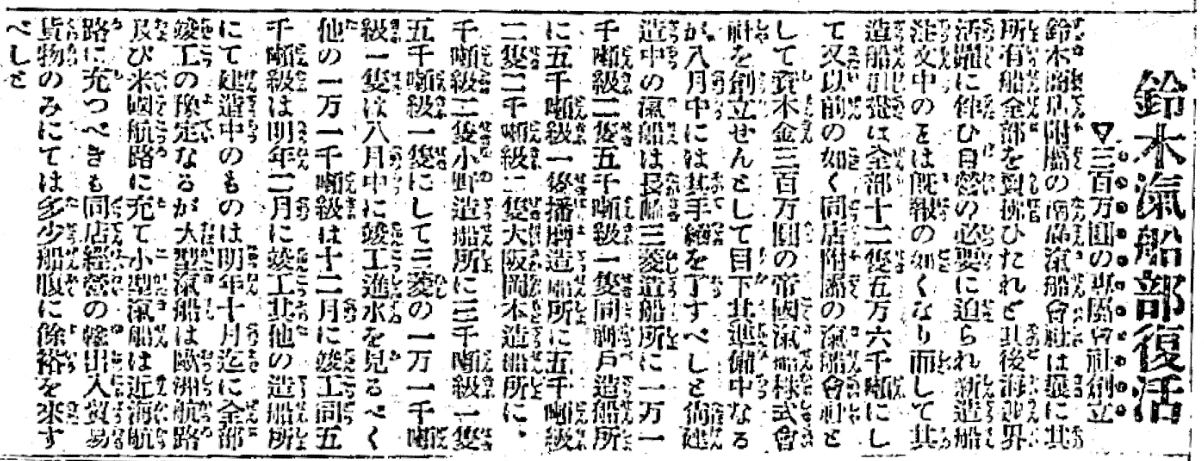 鈴木滊船部復活
▽三百万圓の専屬會社創立
鈴木商店附屬の南滿滊船會社は曩に其
所有船全部を賣拂ひたれど其後海運界
活躍に伴ひ自營の必要に迫られ新造船
注文中のとは既報の如くなり而して其
造船噸數は全部十二隻五万六千噸にし
て又以前の如く同店附屬の滊船會社と
して資本金三百万圓の帝國滊船株式會
社を創立せんとして目下其準備中なる
が八月中には其手續を了すべしと尚建
造中の滊船は長崎三菱造船所に一万一
千噸級二隻五千噸級一隻同神戸造船所
に五千噸級一隻播磨造船所に五千噸級
二隻二千噸級二隻大阪岡本造船所に、
千噸級二隻小野造船所に三千噸級一隻
五千噸級一隻にして三菱の一万一千噸
級一隻は八月中に竣工進水を見るべく
他の一万一千噸級は十二月に竣工同五
千噸級は明年二月に竣工其他の造船所
にて建造中のものは明年十月迄に全部
竣工の豫定なるが大型滊船は歐洲航路
及び米國航路に充て小型滊船は近海航
路に充つべきも同店經營の輸出入貿易
貨物のみにては多少船腹に餘裕を來す
べしと